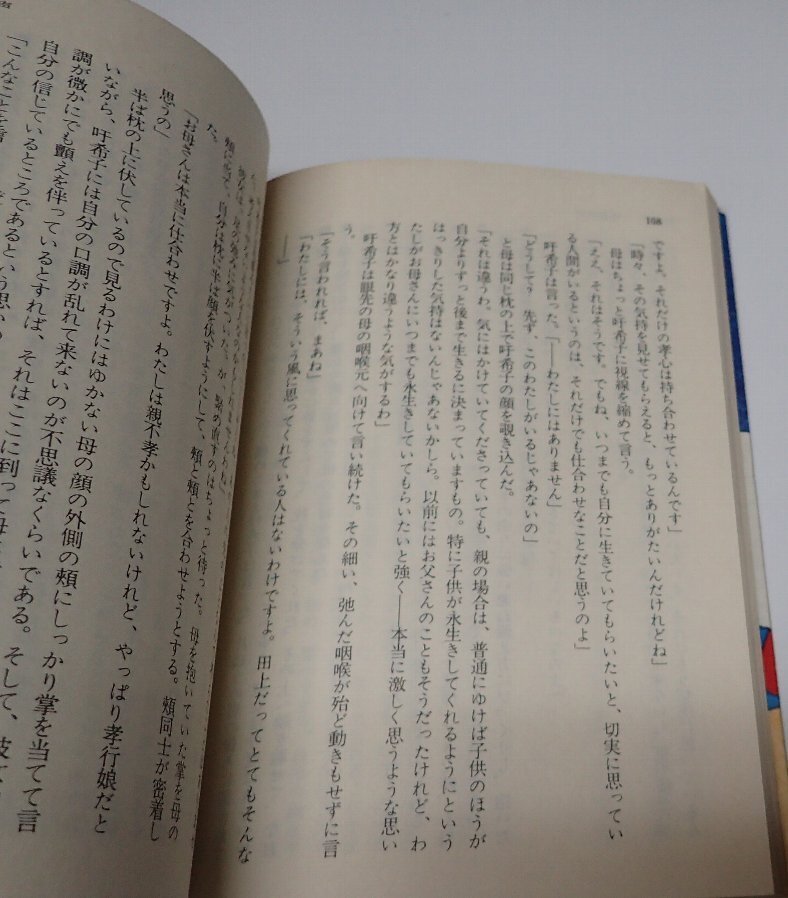 108
ですよ、それだけの孝心は持ち合わせているんです」
「時々、その気持を見せてもらえると、もっとありがたいんだけれどね」
母はちょっと吁希子に視線を縮めて言う。
「ええ、それはそうです。でもね、いつまでも自分に生きていてもらいたいと、切実に思ってい
る人間がいるというのは、それだけでも仕合わせなことだと思うのよ」
吁希子は言った。「——わたしにはありません」
「どうして? 先ず、このわたしがいるじゃあないの」
と母は同じ枕の上で吁希子の顔を覗き込んだ。
「それは違うわ。気にはかけていてくださっていても、親の場合は、普通にゆけば子供のほうが
自分よりずっと後まで生きるに決まっていますもの。特に子供が永生きしてくれるようにという
はっきりした気持はないんじゃあないかしら。以前にはお父さんのこともそうだったけれど、わ
たしがお母さんにいつまでも永生きしていてもらいたいと強く——本当に激しく思うような思い
方とはかなり違うような気がするわ」
吁希子は眼先の母の咽喉元へ向けて言い続けた。その細い、弛んだ咽喉が殆ど動きもせずに言
う。
「そう言われれば、まあね」
「わたしには、そういう風に思ってくれている人はないわけですよ。田上だってとてもそんな
——」
頬に当て、自分は枕に半ば顔を伏すようにして、頬と頬とを合わせようとする。頬同士が密着し
た。
「お母さんは本当に仕合わせですよ。わたしは親不孝かもしれないけれど、やっぱり孝行娘だと
思うの」
半ば枕の上に伏しているので見るわけにはゆかない母の顔の外側の頬にしっかり掌を当てて言
いながら、吁希子には自分の口調が乱れて来ないのが不思議なくらいである。そして、
調が微かにでも顫えを伴っているとすれば、それはここに到って母
自分の信じているところであるという思い
「こんなことを言